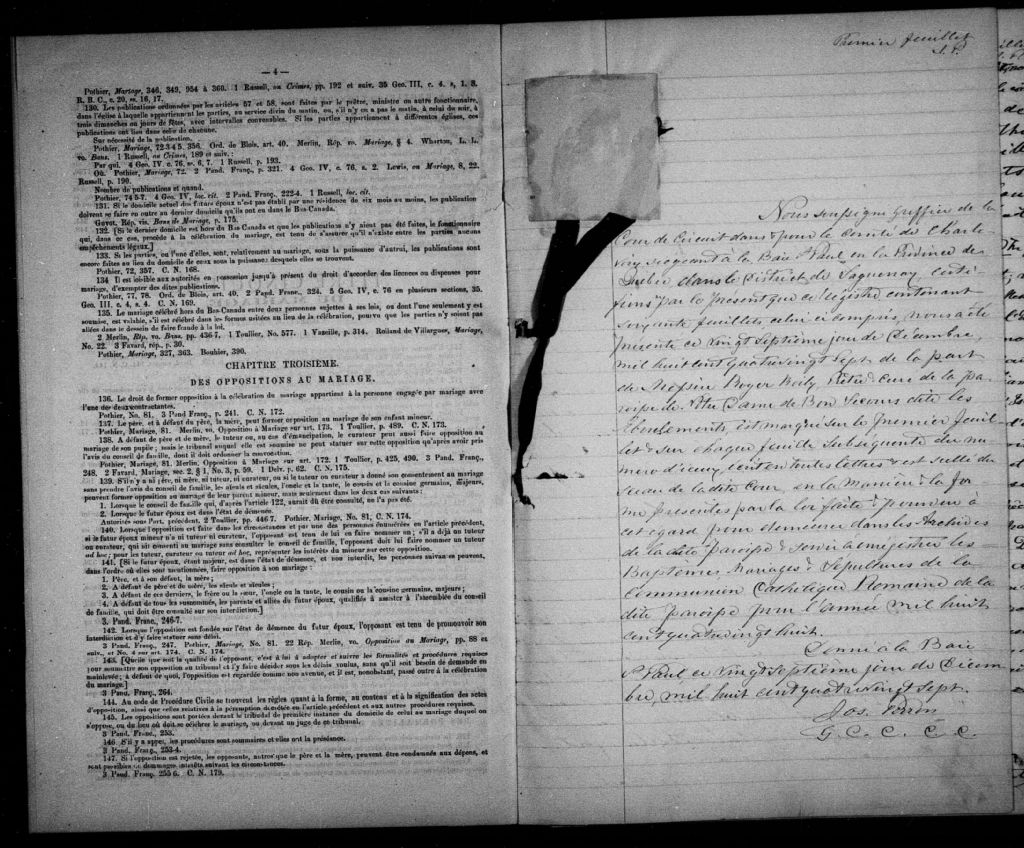 — 4 —
Pothier, Mariage, 346, 349, 954 à 360. 1 Russell, on Crimes, pp. 192 et suiv. 35 Geo. III, c. 4. s, 1. S.
R. B. C., c. 20, ss. 16, 17.
130. Les publications ordonnées par les articles 57 et 58, sont faites par le prêtre, ministre ou autre fonctionnaire,
dans l'église à laquelle appartiennent les parties, au service divin du matin, ou, s'il n'y en a pas le matin, à celui du soir, à
trois dimanches ou jours de fêtes, avec intervalles convenables. Si les parties appartiennent à différentes églises, ces
publications ont lieu dans celle de chacune.
Sur nécessité de la publication.
Pothier, Mariage, 72-3 4 5. 356. Ord. de Blois, art. 40. Merlin, Rép. vo. Mariage, § 4. Wharton, L. L.
vo. Bans. 1 Russell, on Crimes, 189 et suiv.:
Par qui. 4 Geo. IV. c. 76, ss. 6, 7. 1 Russell, p. 193.
Où. Pothier, Mariage, 72. 2 Pand. Franç., p. 321. 4 Geo. IV, c. 76, s. 2. Lewis, on Mariage, 8, 22.
Russell, p. 190.
Nombre de publications et quand.
Pothier, 74 5-7. 4 Geo. IV, loc. cit. 2 Pand. Franç., 222-4. 1 Russell, loc. cit.
131. Si le domicile actuel des futurs époux n'est pas établi par une résidence de six mois au moins, les publication
doivent se faire en outre au dernier domicile qu'ils ont eu dans le Bas-Canada.
Guyot. Rép. vis. Bans de Mariage, p. 175.
132. [Si le dernier domicile est hors du Bas-Canada et que les publications n'y aient pas été faites, le fonctionnaire
qui, dans ce cas, procède à la célébration du mariage, est tenu de s'assurer qu'il n'existe entre les parties aucuns
empêchements légaux.]
133. Si les parties, ou l'une d'elles, sont, relativement au mariage, sous la puissance d'autrui, les publications sont
encore faites au lieu du domicile de ceux sous la puissance desquels elles se trouvent.
Pothier, 72, 357. C. N. 168.
134 Il est loisible aux autorités en possession jusqu'à présent du droit d'accorder des licences ou dispenses pour
mariage, d'exempter des dites publications.
Pothier, 77, 78. Ord. de Blois, art. 40. 2 Pand. Franç., 324. 5 Geo. IV, c. 76 en plusieurs sections, 35.
Geo. III, c. 4, s. 4. C. N. 169.
135. Le mariage célébré hors du Bas-Canada entre deux personnes sujettes à ses lois, ou dont l'une seulement y est
soumise, est valable, s'il est célébré dans les formes usitées au lieu de la célébration, pourvu que les parties n'y soient pas
allées dans le dessein de faire fraude à la loi.
2 Merlin, Rép. vo. Bans, pp. 436-7. 1 Toullier, No. 577. 1 Vazeille, p. 314. Rolland de Villargues, Mariage,
No. 22. 3 Favard, rép., p. 30.
Pothier, Mariage, 327, 363. Bouhier, 390.
CHAPITRE TROISIÈME.
DES OPPOSITIONS AU MARIAGE.
136. Le droit de former opposition à la célébration du mariage appartient à la personne engagée par mariage avec
l'une des deux contractantes.
Pothier, No. 81. 3 Pand Franç., p. 241. C. N. 172.
137. Le père, et à défaut du père, la mère, peut former opposition au mariage de son enfant mineur.
Pothier, Mariage, 81. Merlin, vo. Opposition à Mariage sur art. 173. 1 Toullier, p. 489. C. N. 173.
138. A défaut de père et de mère, le tuteur ou, au cas d'émancipation, le curateur peut aussi faire opposition au
mariage de son pupille; mais le tribunal auquel elle est soumise ne peut statuer sur cette opposition qu'après avoir pris
l'avis du conseil de famille, dont il doit ordonner la convocation.
Pothier, Mariage, 81. Merlin, Opposition à Mariage sur art. 172. 1 Toullier, p. 425, 490. 3 Pand. Franç.,
248. 2 Favard, Mariage, sec. 2. § 1, No. 3, p. 59. 1 Delv. p. 62. C. N. 175.
139. S'il n'y a ni père, ni mère, ni tuteur, ni curateur, ou si le tuteur ou curateur a donné son consentement au mariage
sans prendre l'avis du conseil de famille, les aïeuls et aïeules, l'oncle et la tante, le cousin et la cousine germains, majeurs,
peuvent former opposition au mariage de leur parent mineur, mais seulement dans les deux cas suivants:
1. Lorsque le conseil de famille qui, d'après l'article 122, aurait dû être consulté, ne l'a pas été.
2. Lorsque le futur époux est dans l'état de démence.
Autorités sous l'art. précédent. 2 Toullier, pp. 446-7. Pothier, Mariage, No. 81, C. N. 174.
140. Lorsque l'opposition est faite dans les circonstances et par une des personnes énumérées en l'article précédent,
si le futur époux mineur n'a ni tuteur ni curateur, l'opposant est tenu de lui en faire nommer un; s'il a déjà un tuteur
ou curateur, qui ait consenti au mariage sans consulter le conseil de famille, l'opposant doit lui faire nommer un tuteur
ad hoc; pour les tuteur, curateur ou tuteur ad hoc, représenter les intérêts du mineur sur cette opposition.
141. [Si le futur époux, étant majeur, est dans l'état de démence, et non interdit, les personnes suivantes peuvent,
dans l'ordre où elles sont mentionnées, faire opposition à son mariage:
1. Père, et à son défaut, la mère;
2. A défaut de père et de mère, les aïeuls et aïeules;
3. A défaut de ces derniers, le frère ou la sœur, l'oncle ou la tante, le cousin ou la cousine germains, majeurs;
4. A défaut de tous les susnommés, les parents et alliés du futur époux, qualifiés à assister à l'assemblée du conseil
de famille, qui doit être consulté sur son interdiction.]
3. Pand. Franç., 246-7.
142. Lorsque l'opposition est fondée sur l'état de démence du futur époux, l'opposant est tenu de promouvoir son
interdiction et d'y faire statuer sans délai.
3 Pand. Franç., 247. Pothier, Mariage, No. 81. 22 Rép. Merlin, vo. Opposition au Mariage, pp. 88 et
suiv., et No. 4 sur art. 174. C. N. 174.
143. [Quelle que soit la qualité de l'opposant, c'est à lui à adopter et suivre les formalités et procédures requises
pour soumettre son opposition au tribunal et l'y faire décider sous les délais voulus, sans qu'il soit besoin de demande en
mainlevée; à défaut de quoi, l'opposition est regardée comme non avenue, et il est, nonobstant, passé outre à la célébration
du mariage.]
3 Pand. Franç., 264.
144. Au code de Procédure Civile se trouvent les règles quant à la forme, au contenu et à la signification des actes
d'opposition, ainsi que celles relatives à la péremption décrétée en l'article précédent et aux autres procédures requises.
145. Les oppositions sont portées devant le tribunal de première instance du domicile de celui au mariage duquel on
s'oppose, ou du lieu où doit se célébrer le mariage, ou devant un juge de ce tribunal.
3 Pand. Franç., 253.
146. S'il y a appel, les procédures sont sommaires et elles ont la préséance.
3 Pand. Franç., 253-4.
147. Si l'opposition est rejetée, les opposants, autres que le père et la mère, peuvent être condamnés aux dépens, et
sont passibles de dommages-intérêts suivant les circonstances.
3 Pand. Franç., 255 6. C. N. 179.
Premier feuillet
J. P.
Nous soussigné Greffier de la
Cour de Circuit dans & pour le comté de Charle-
voix siégeant à la Baie St Paul en la Province de
Québec dans le District de Saguenay certi-
fions par le présent que ce régistre contenant
soixante feuillets celui ci compris, nous a été
présenté ce vingt septième jour de Décembre
mil huit cent quatre vingt sept de la part
de Messire Roger Boily Prêtre & curé de la pa-
roisse de Notre Dame de Bon Secours dite les
Eboulements, est marqué sur le premier feuil-
let & sur chaque feuille subséquente du nu-
méro d'iceux, écrit en toutes lettres & est scellé du
sceau de la dite Cour, en la manière & la for-
me prescrites par la loi faite & pourvue à
cet égard pour demeurer dans les Archives
de la dite paroisse & servir à enrégistrer les
Baptêmes Mariages & Sépultures de la
Communion Catholique Romaine de la
dite paroisse pour l'année mil huit
cent quatre vingt huit.
Donné à la Baie
St Paul ce vingt septième jour de Décem-
bre, mil huit cent quatre vingt sept.
Jos. Perron
G. C. C. C. C.